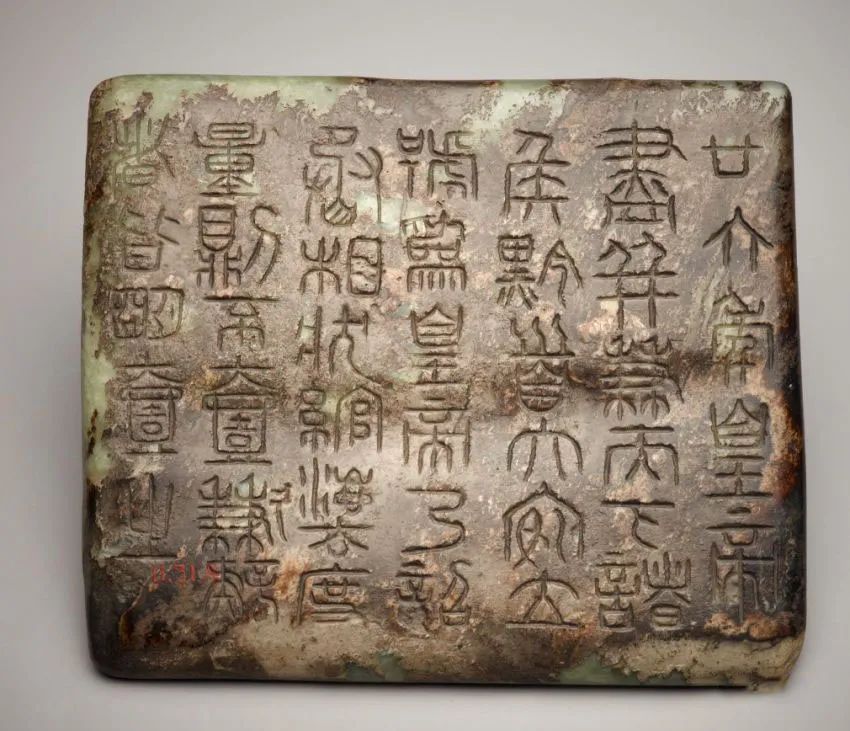 廿六年皇帝
盡并兼天下諸
侯黔首大安立
號為皇帝乃詔
丞相狀綰灋度
量則不壹歉疑
者皆明壹之